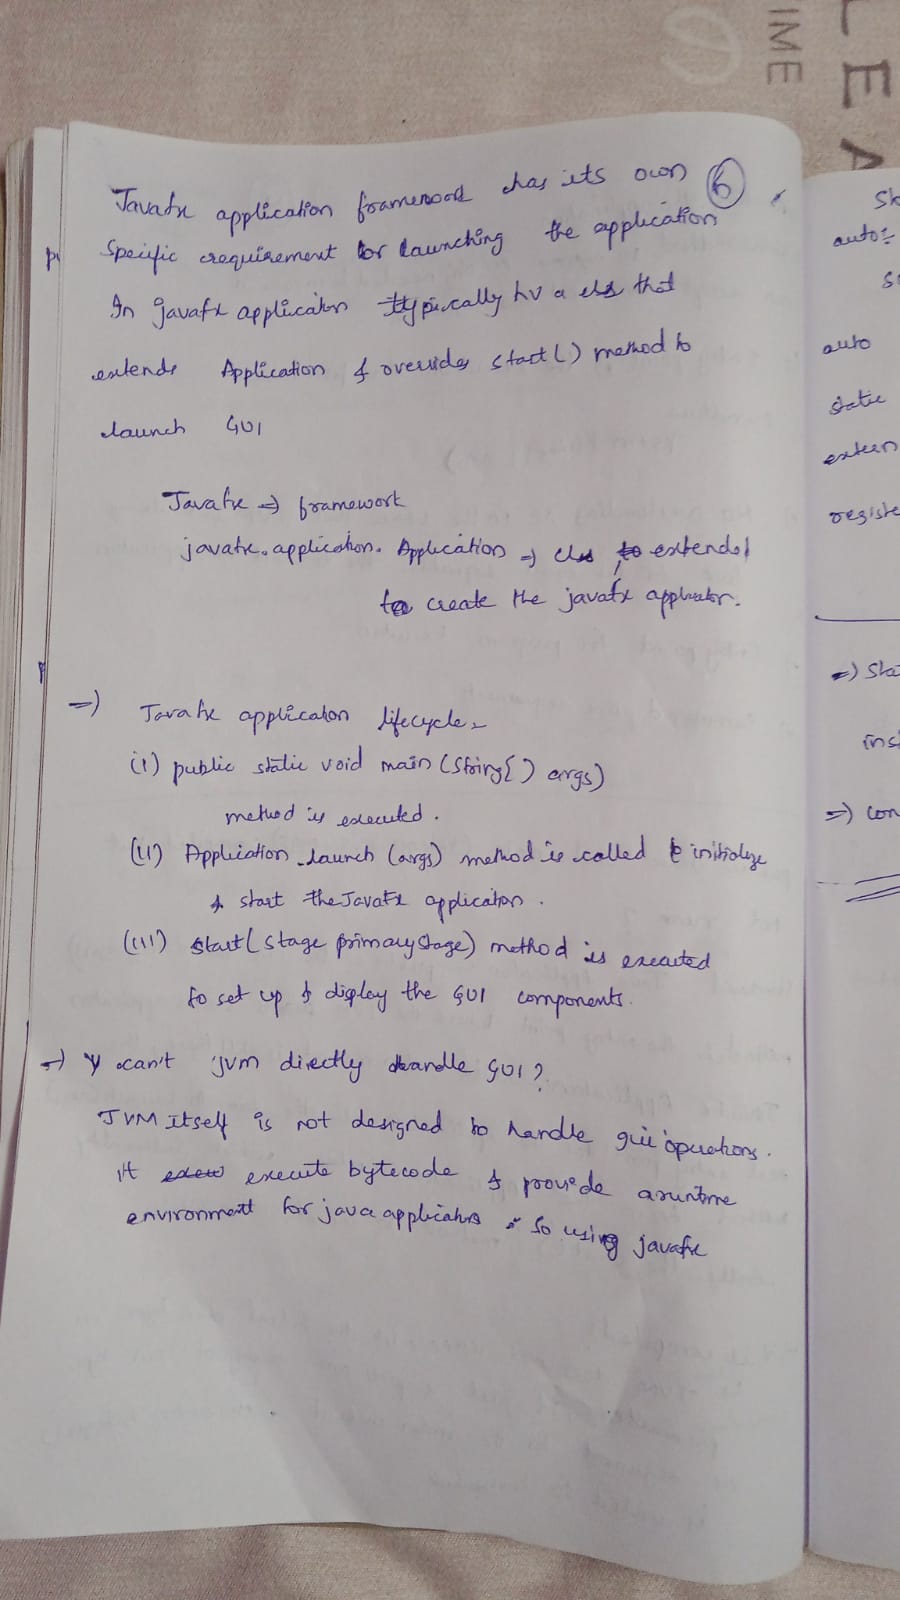 6
Javafx application framework has its own
Specific requirement for launching the application
In javafx application typically hv a cls that
extends Application & overrides start() method to
launch GUI
Javafx => framework
javafx.application.Application => cls to extended
to create the javafx application.
=> Javafx application lifecycle
(i) public static void main (String[] args)
method is executed.
(ii) Application launch (args) method is called to initialize
& start the JavaFx application.
(iii) Start(Stage primaryStage) method is executed
to set up & display the GUI components.
=> Y can't jvm directly handle GUI?
JVM itself is not designed to handle gui operations.
it execute bytecode & provide a runtime
environment for java applications. So using javafx
LEA
IME
auto:
auto
static
extern
registe
=> Sta
ins
=> con